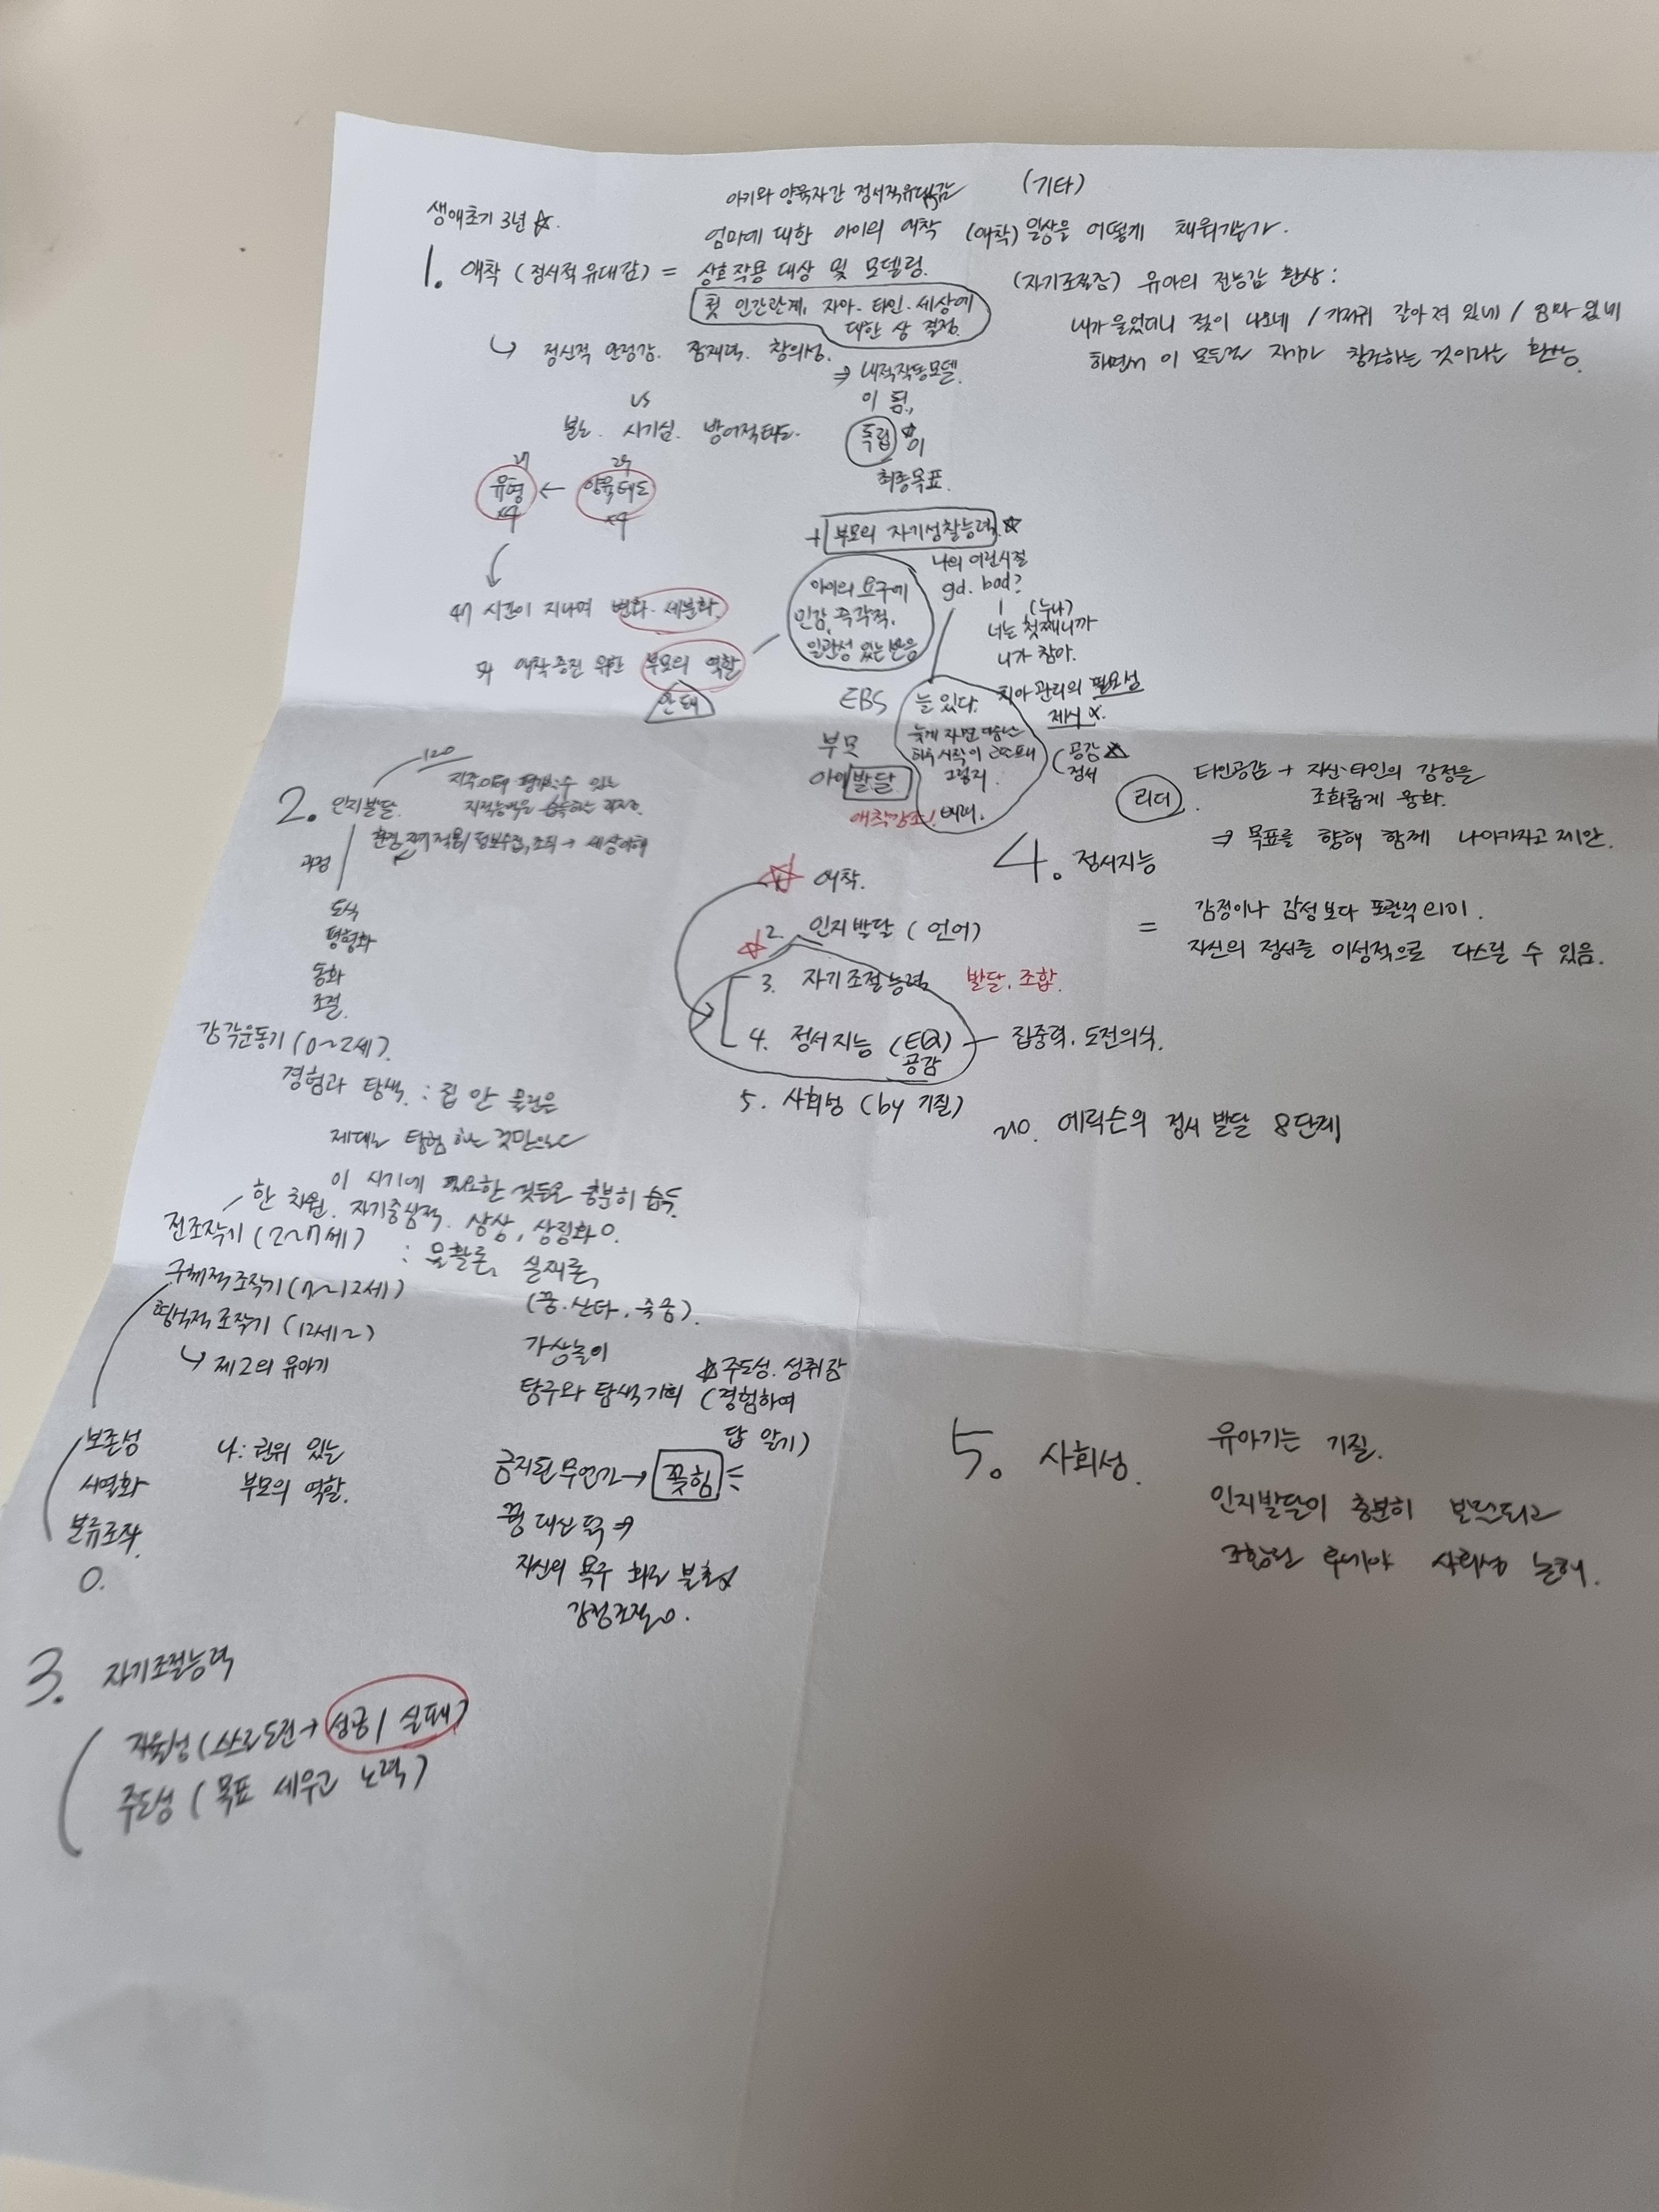 생애초기 3년 ☆.
아기와 양육자간 정서적유대감
엄마에 대한 아이의 애착
1. 애착 (정서적 유대감) = 상호작용 대상 및 모델링.
첫 인간관계, 자아·타인·세상에
대한 상 결정.
↳ 정신적 안정감. 잠재력. 창의성.
vs
분노. 시기심. 방어적태도.
⇒ 내적작동모델
이 됨,
독립 ☆이
최종목표.
유형 ← 양육태도
시간이 지나며 변화·세분화.
애착증진 위한 부모의 역할
안돼
+ 부모의 자기성찰능력 ☆
아이의 요구에
민감, 즉각적,
일관성 있는 반응
나의 어린시절
gd. bad?
(누나)
너는 첫째니까
니가 참아.
EBS
부모
아이발달
애착강조!
늘 있다.
늦게 자면 다음날
하루 시작이
그렇지.
치아관리의 필요성
제시 X.
(공감 ☆
정서
(기타)
(애착) 일상을 어떻게 채워가는가.
(자기조절중) 유아의 전능감 환상:
내가 울었더니 젖이 나오네 / 기저귀 갈아져 있네 / 엄마 있네
하면서 이 모든걸 자기가 창조하는 것이라는 환상.
2. 인지발달
120
지적능력을 습득하는 과정.
정보수집, 조직 → 세상이해
과정
도식
평형화
동화
조절.
감각운동기 (0~2세).
경험과 탐색. : 집 안 물건을
제대로 탐험하는 것만으로
이 시기에 필요한 것들을 충분히 습득.
한 차원. 자기중심적. 상상, 상징화 O.
전조작기 (2~7세)
: 물활론, 실재론,
(꿈·산타, 죽음).
가상놀이
탐구와 탐색기회
☆주도성. 성취감
(경험하여
답 알기)
구체적조작기 (7~12세)
형식적조작기 (12세~)
↳ 제2의 유아기
보존성
서열화
분류조작.
O.
나: 권위 있는
부모의 역할.
금지된 무언가 → 꽂힘
꿩 대신 닭 ⇒
자신의 욕구
감정조절 O.
☆ 애착.
☆ 2. 인지발달 (언어)
3. 자기조절능력 발달. 조합.
4. 정서지능 (EQ) — 집중력. 도전의식.
공감
5. 사회성 (by 기질)
에릭슨의 정서 발달 8단계
리더.
타인공감 + 자신·타인의 감정을
조화롭게 융화.
⇒ 목표를 향해 함께 나아가자고 제안.
4. 정서지능
= 감정이나 감성보다 포괄적 의미.
자신의 정서를 이성적으로 다스릴 수 있음.
3. 자기조절능력
자율성 (스스로도전 → 성공 / 실패)
주도성 (목표 세우고 노력)
5. 사회성.
유아기는 기질.
인지발달이 충분히 발달되고
조합된 후에야 사회성 논해.